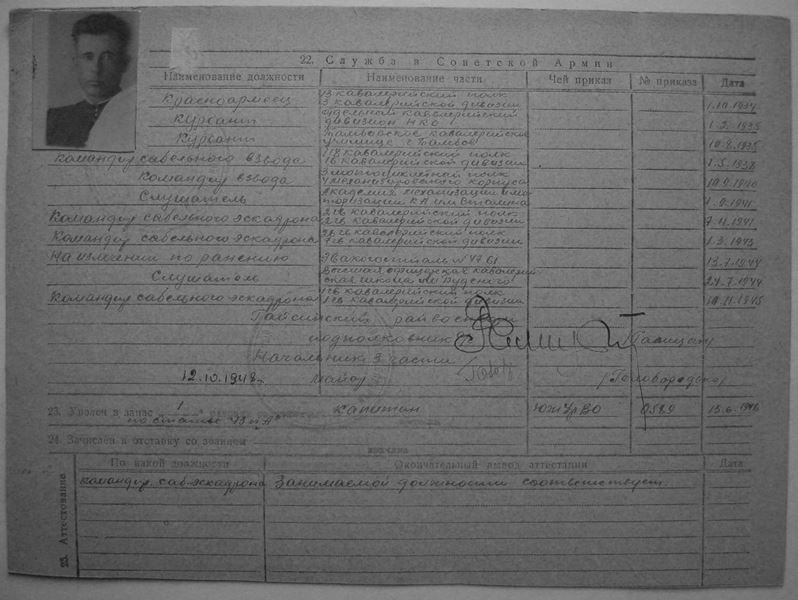 22. Служба в Советской Армии
Наименование должности Наименование части Чей приказ № приказа Дата
Красноармеец 13 кавалерийский полк 3 кавалерийской дивизии 1.10.1934
Курсант Отдельный кавалерийский дивизион НКО 1935
Курсант Тамбовское кавалерийское училище г. Тамбов 10.8.1935
Командир сабельного взвода кавалерийский полк 16 кавалерийской дивизии 1.5.1938
Командир взвода мотоциклетный полк механизированного корпуса 1940
Слушатель Академия механизации и моторизации КА им. Сталина 1.9.1941
Командир сабельного эскадрона 2 гв кавалерийский полк гв кавалерийской дивизии 7.11.1941
Командир сабельного эскадрона гв кавалерийский полк гв кавалерийской дивизии 1.3.1943
На излечении по ранению Эвакогоспиталь № 4761 13.7.1944
Слушатель Высшая офицерская кавалерийская школа им. Буденого 24.7.1944
Командир сабельного эскадрона гв кавалерийский полк гв кавалерийской дивизии 1945
Гайсинский райвоенком
подполковник
Начальник 3 части
12.10.1948г. майор
23. Уволен в запас 1 капитан ЮжУрВО 0589 15.6.1946
по статье "А"
24. Зачислен в отставку со званием
25. Аттестование
По какой должности Окончательный вывод аттестации Дата
Командир саб. эскадрона Занимаемой должности соответствует.